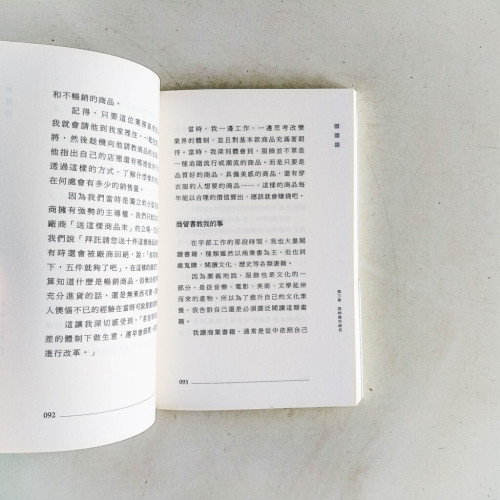 和不暢銷的商品。
記得，只要這位業務員來
我就會請他到我家裡住，一起吃
將，然後趁機向他請教商品的
他指出自己的店裡還有哪裡
透過這樣的方式，了解什麼樣的
在何處會有多少的銷售量。
因為我們當時是獨立的小
商擁有強勢的主導權，我們只能
廠商「送這樣商品來」的立場，
我們說「拜託請您送十件這個商品
有時還會被廠商回絕，說「
下，五件就夠了吧」。在這樣的
算知道什麼是暢銷商品，但
充分進貨的話，還是無
人懊惱不已的經驗在當時可說
這讓我深切感受到，「若
差的體制下做生意，遲早會
進行改革。」
092
當時，我一邊工作，一邊思考改變
業界的體制，並且對基本款商品充滿著期
待。當時，我深刻體會到，服飾並不單是
一種追隨流行或潮流的商品，而是只要是
品質好的商品、具備美感的商品，還有穿
衣服的人想要的商品……，這樣的商品每
年能以合理的價值賣出，應該就會賺錢吧。
商管書教我的事
在宇部工作的那段時間，我也大量閱
讀書籍，種類雖然以商業書為主，但也到
處蒐購、閱讀文化、歷史等各類書籍。
因為廣義地說，服飾也是文化的一
部分，是從音樂、電影、美術、文學延伸
而來的產物，所以為了提升自己的文化素
養，我告訴自己還是必須廣泛閱讀這類書
籍。
我讀商業書籍，通常是從中依照自己
093